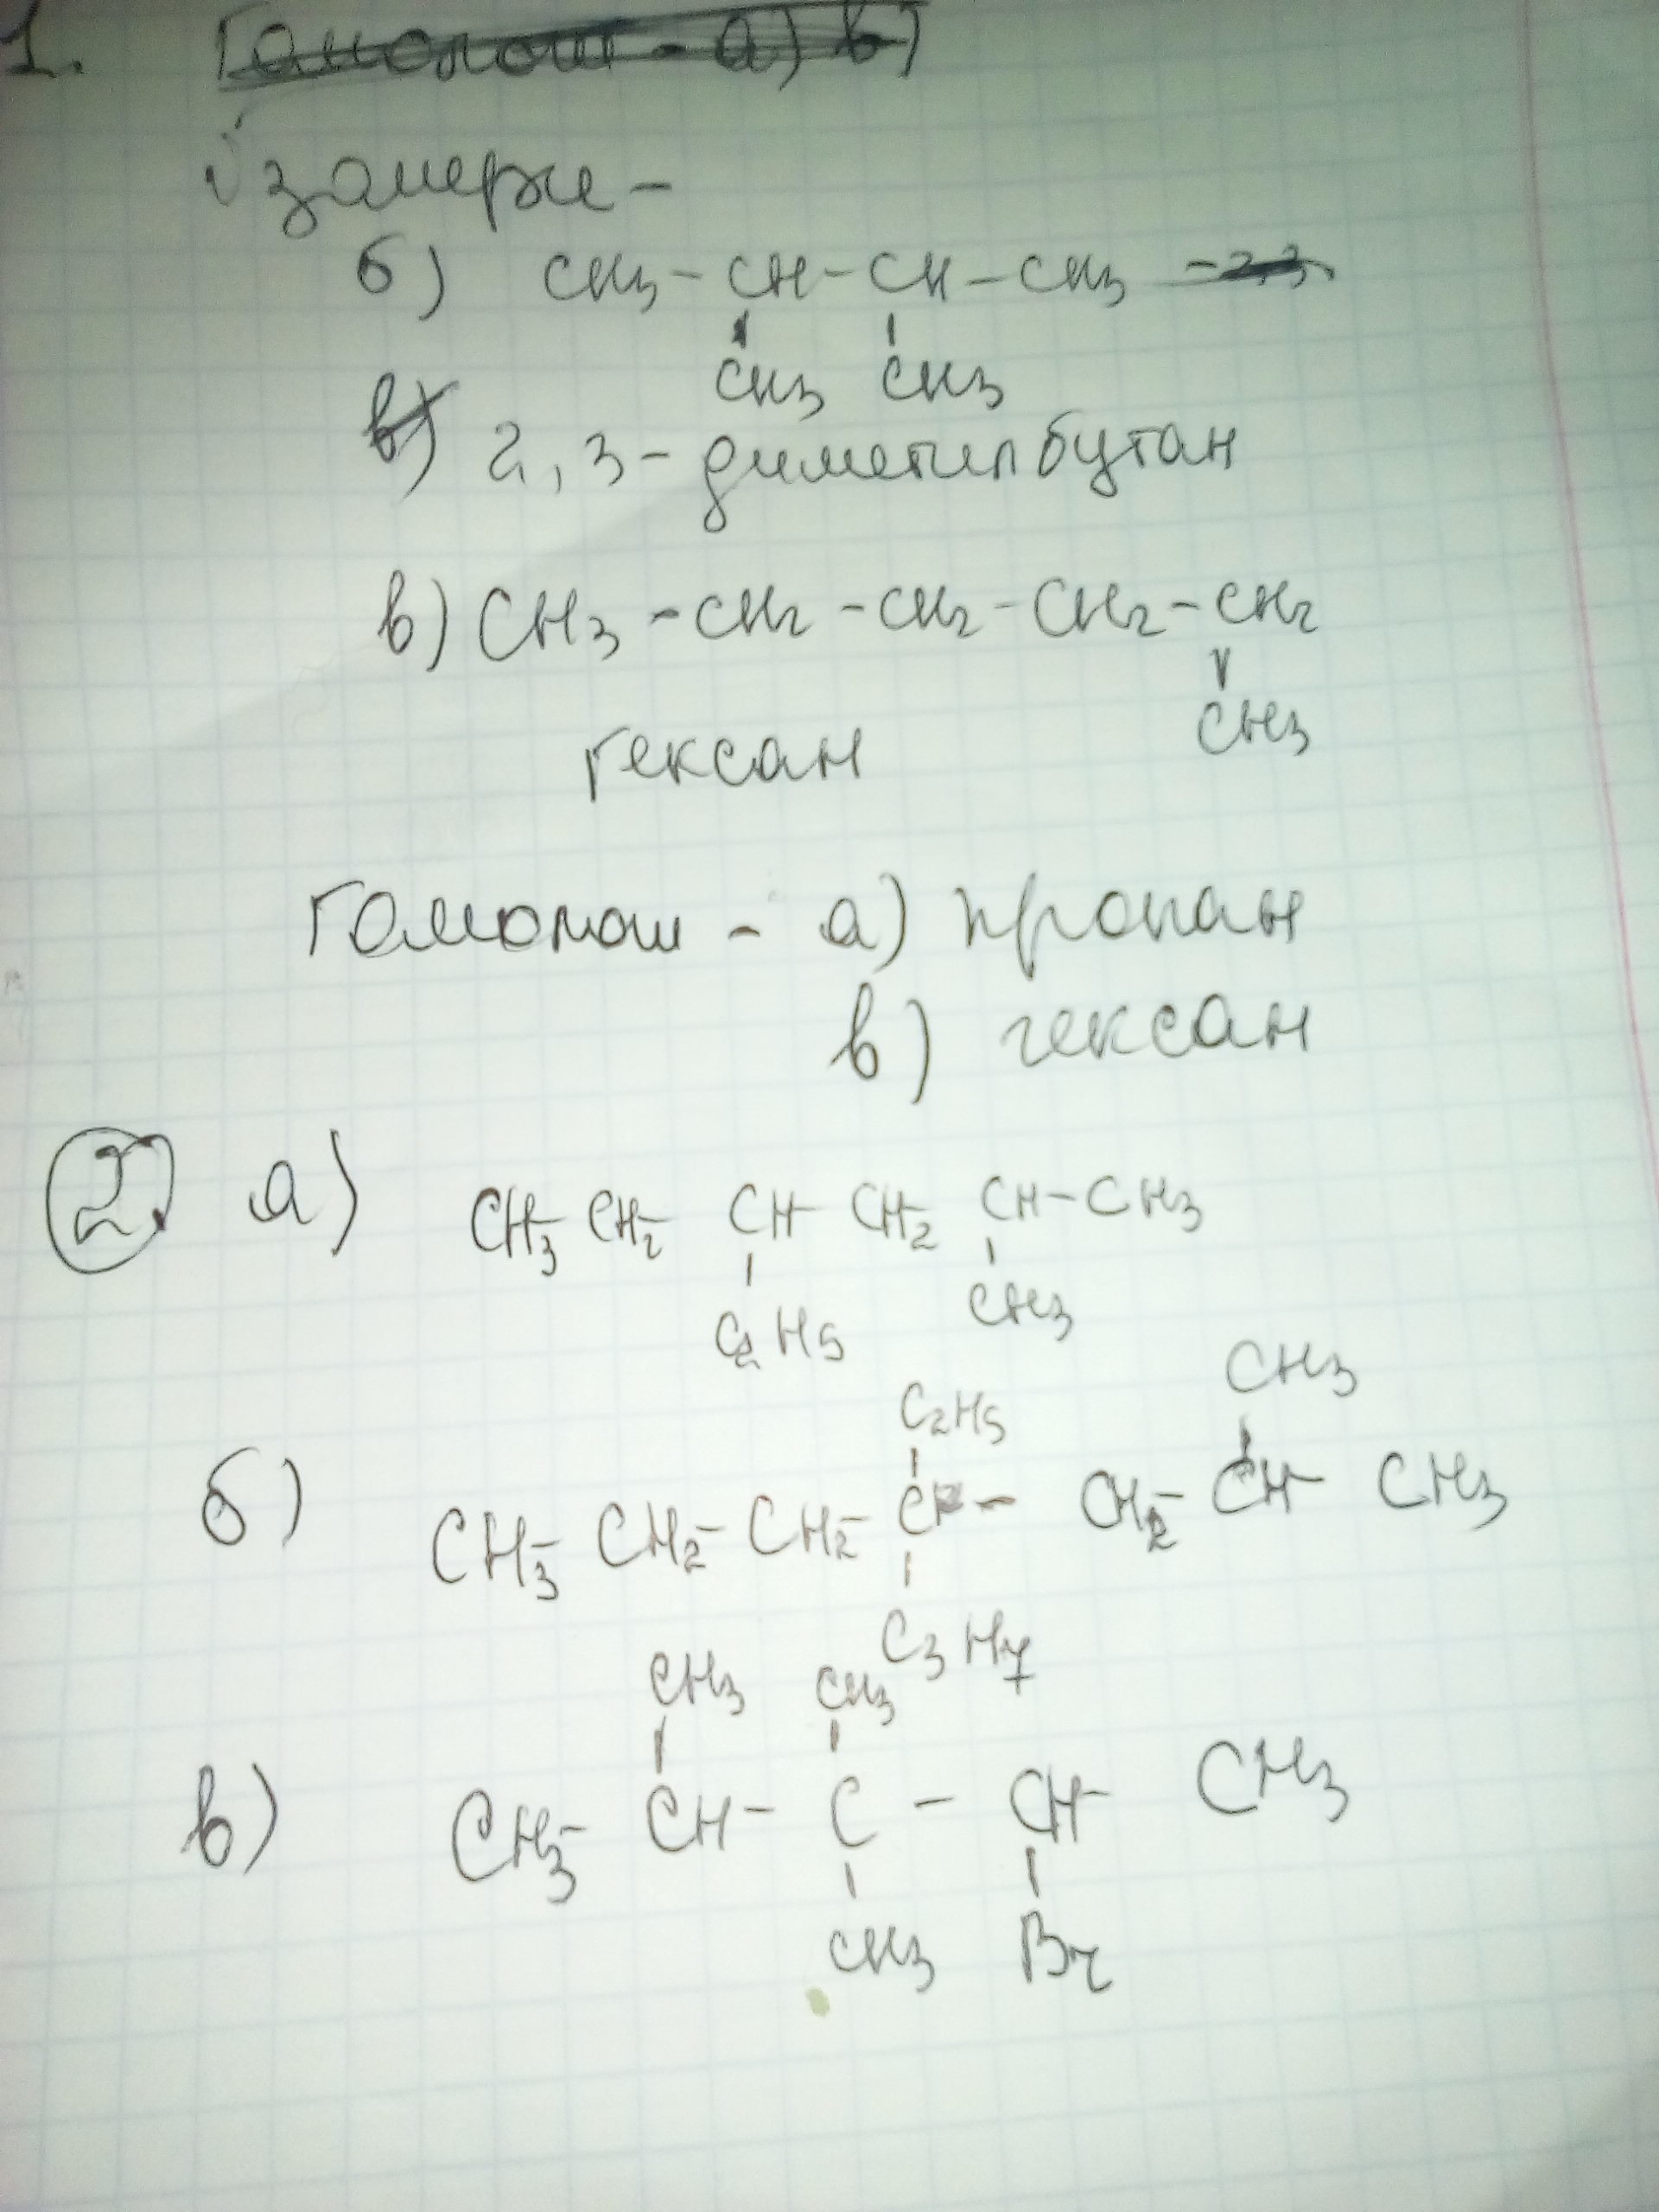 1. Гомологи - а) в)
Изомеры -
б) CH3 - CH - CH - CH3 - 2,3
CH3 CH3
в) 2,3 - диметилбутан
в) CH3 - CH2 - CH2 - CH2 - CH2
CH3
гексан
Гомологи - а) пропан
в) гексан
2. а) CH3- CH2- CH- CH2- CH-CH3
C2H5 CH3
CH3
C2H5
б) CH3- CH2- CH2- C - CH2- CH- CH3
C3H7
CH3 CH3
в) CH3- CH- C - CH- CH3
CH3 Br